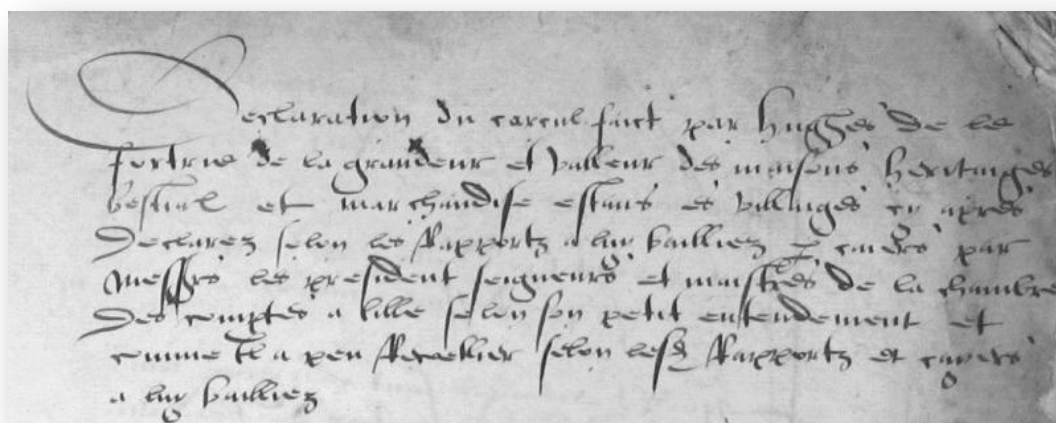 Declaration du carcul faict par Hughes de le
fortrie de la grandeur et valleur des maisons heritaiges
bestial et marchandise estans es villaiges cy apres
Declarez selon les Rapportz a luy bailliez par
Messrs les president seigneurs et maistres de la chambre
Des comptes a lille selon son petit entendement et
comme Il a peu selon lesd Rapportz et cayers
a luy bailliez